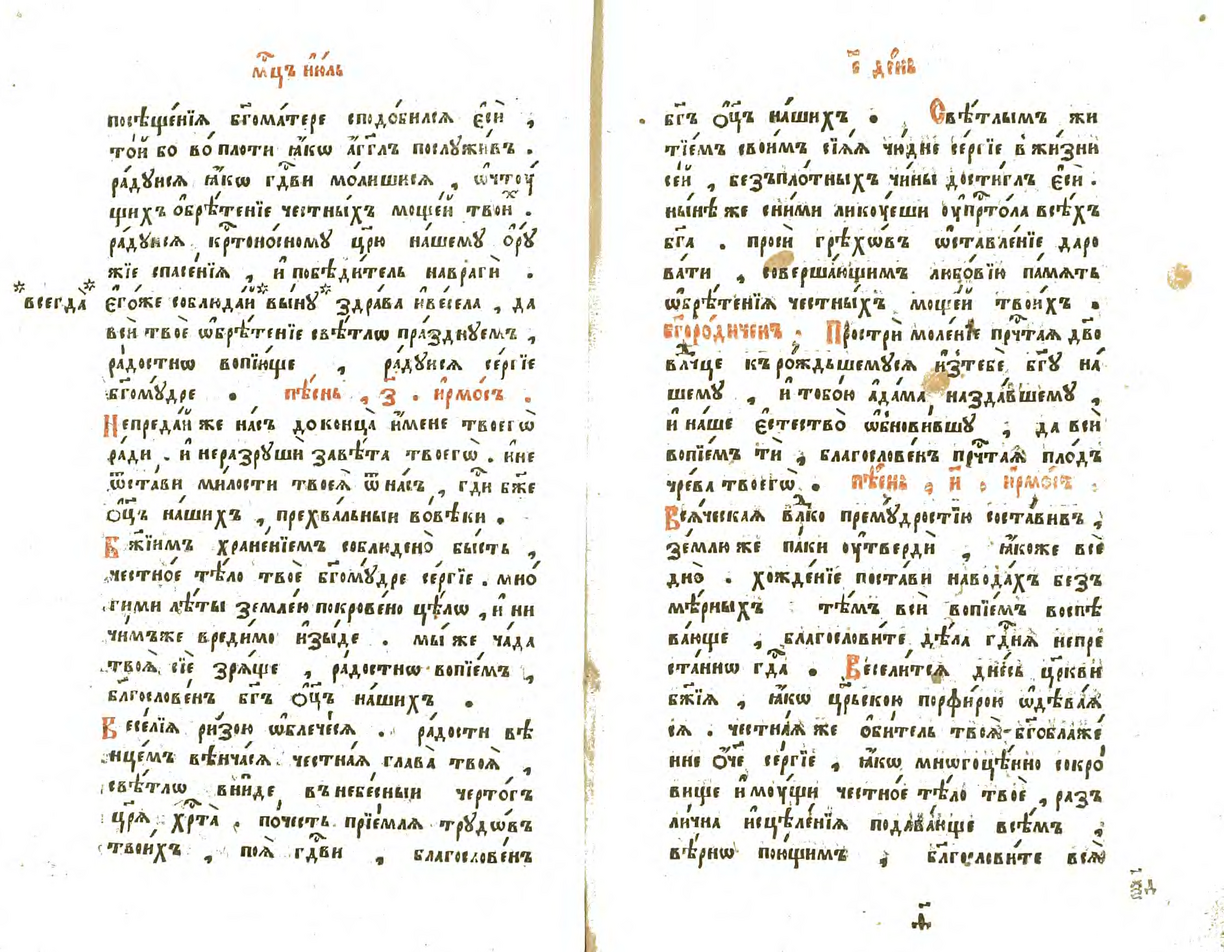 мⷭ҇цъ ию́ль
посѣще́нїѧ бг҃ома́тере сподо́билсѧ є҆сѝ ,
то́и бо во́ плоти ꙗ҆́кѡ а҆́гг҃лъ послꙋжи́въ .
ра́дꙋисѧ ꙗ҆́кѡ гдⷭ҇ви мо́лишисѧ , ѡ҆чтꙋ́
щихъ ѡ҆брѣ́тенїе че́стны́хъ моще́й твои́х .
ра́дꙋисѧ крⷭ҇тоно́сномꙋ цр҃ю на́шемꙋ ѻ҆рꙋ́
жїе спасе́нїѧ , и҆ побѣди́тель навраги̂ .
*всегда̀* є҆го́же соблюда́й *вы́нꙋ* здра́ва и҆ве́села , да
всѝ твоѐ ѡ҆брѣ́тенїе свѣ́тлѡ пра́зднꙋемъ ,
ра́достнѡ вопїю́ще , ра́дꙋисѧ се́ргїе
бг҃омꙋ́дре . пѣ́снь , з҃ . ирмо́съ .
Непреда́й же на́съ доконца̀ и҆́мене твоегѡ̀
ра́ди . и҆ неразрꙋшѝ завѣ́та твоегѡ̀ . и҆не
ѿста́ви ми́лости твоеѧ̀ ѿна́съ , гдⷭ҇и бж҃е
ѻ҆ц҃ъ на́шихъ , прехва́льныи вовѣ́ки .
Бж҃їимъ хране́нїемъ соблюдено̀ бы́сть ,
честно́е тѣ́ло твоѐ бг҃омꙋ́дре се́ргїе . мно́
гими лѣ́ты земле́ю покрове́но цѣ́лѡ , и҆ ни
чи́мъже вреди́мо и҆зы́де . мы́ же ча́да
твоѧ̂ сїѐ зрѧ́ще , ра́достнѡ вопїе́мъ ,
благослове́нъ бг҃ъ ѻ҆ц҃ъ на́шихъ .
Весе́лїѧ ри́зою ѡ҆блече́сѧ . ра́дости вѣ
нце́мъ вѣнча́сѧ честна́ѧ глава̀ твоѧ̀ ,
свѣ́тлѡ вни́де въ небе́сныи черто́гъ
цр҃ѧ̀ хрⷭ҇та̀ . по́честь прїе́млѧ трꙋдѡ́въ
твои́хъ , поѧ̀ гдⷭ҇ви , благослове́нъ
є҃ де́нь
бг҃ъ ѻ҆ц҃ъ на́шихъ . Свѣ́тлымъ жи
тїе́мъ свои́мъ сїѧ́ѧ чю́дне се́ргїе в жи́зни
се́й , безъпло́тныхъ чи́ны дости́глъ є҆сѝ .
ны́нѣ же сни́ми ликꙋ́еши ᲂу҆прⷭ҇то́ла всѣ́хъ
бг҃а . просѝ грѣхѡ́въ ѡ҆ставле́нїе даро
ва́ти , соверша́ющимъ любо́вїю па́мѧть
ѡ҆брѣ́тенїѧ честны́хъ моще́й твои́хъ .
бг҃оро́диченъ . Прострѝ моле́нїе прⷱ҇таѧ дв҃о
влⷣчце къ ро́ждьшемꙋсѧ и҆з̾тебѐ бг҃ꙋ на́
шемꙋ , и҆ тобо́ю а҆да́ма наз̾да́вшемꙋ ,
и҆ на́ше є҆стество̀ ѡ҆бнови́вшꙋ , да всѝ
вопїе́мъ тѝ , благослове́нъ прⷱ҇таѧ пло́дъ
чре́ва твоегѡ̀ . пѣ́снь , и҃ . ирмо́съ .
Всѧ́ческаѧ влⷣко премꙋ́дростїю соста́вивъ ,
зе́млю же па́ки ᲂу҆твердѝ , ꙗ҆́коже все́
дно̀ . хожде́нїе поста́ви навода́хъ безъ
мѣ́рныхъ тѣ́мъ всѝ вопїе́мъ воспѣ
ва́юще , благослови́те дѣ́ла гдⷭ҇нѧ непре
ста́ннѡ гдⷭ҇а . Весели́тсѧ дне́сь цр҃кви
бж҃їѧ , ꙗ҆́кѡ цр҃ьскою порфи́рою ѡ҆дѣва́ѧ
сѧ . честна́ѧ же ѻ҆би́тель твоѧ̀ бг҃облаже́
нне ѻ҆́ч҃е се́ргїе , ꙗ҆́кѡ многоцѣ́нно сокро́
вище и҆мꙋ́щи честно́е тѣ́ло твоѐ , разъ
ли́чна и҆сцѣле́нїѧ подава́юще всѣ́мъ ,
вѣ́рнѡ пою́щимъ , благослови́те всѧ̂